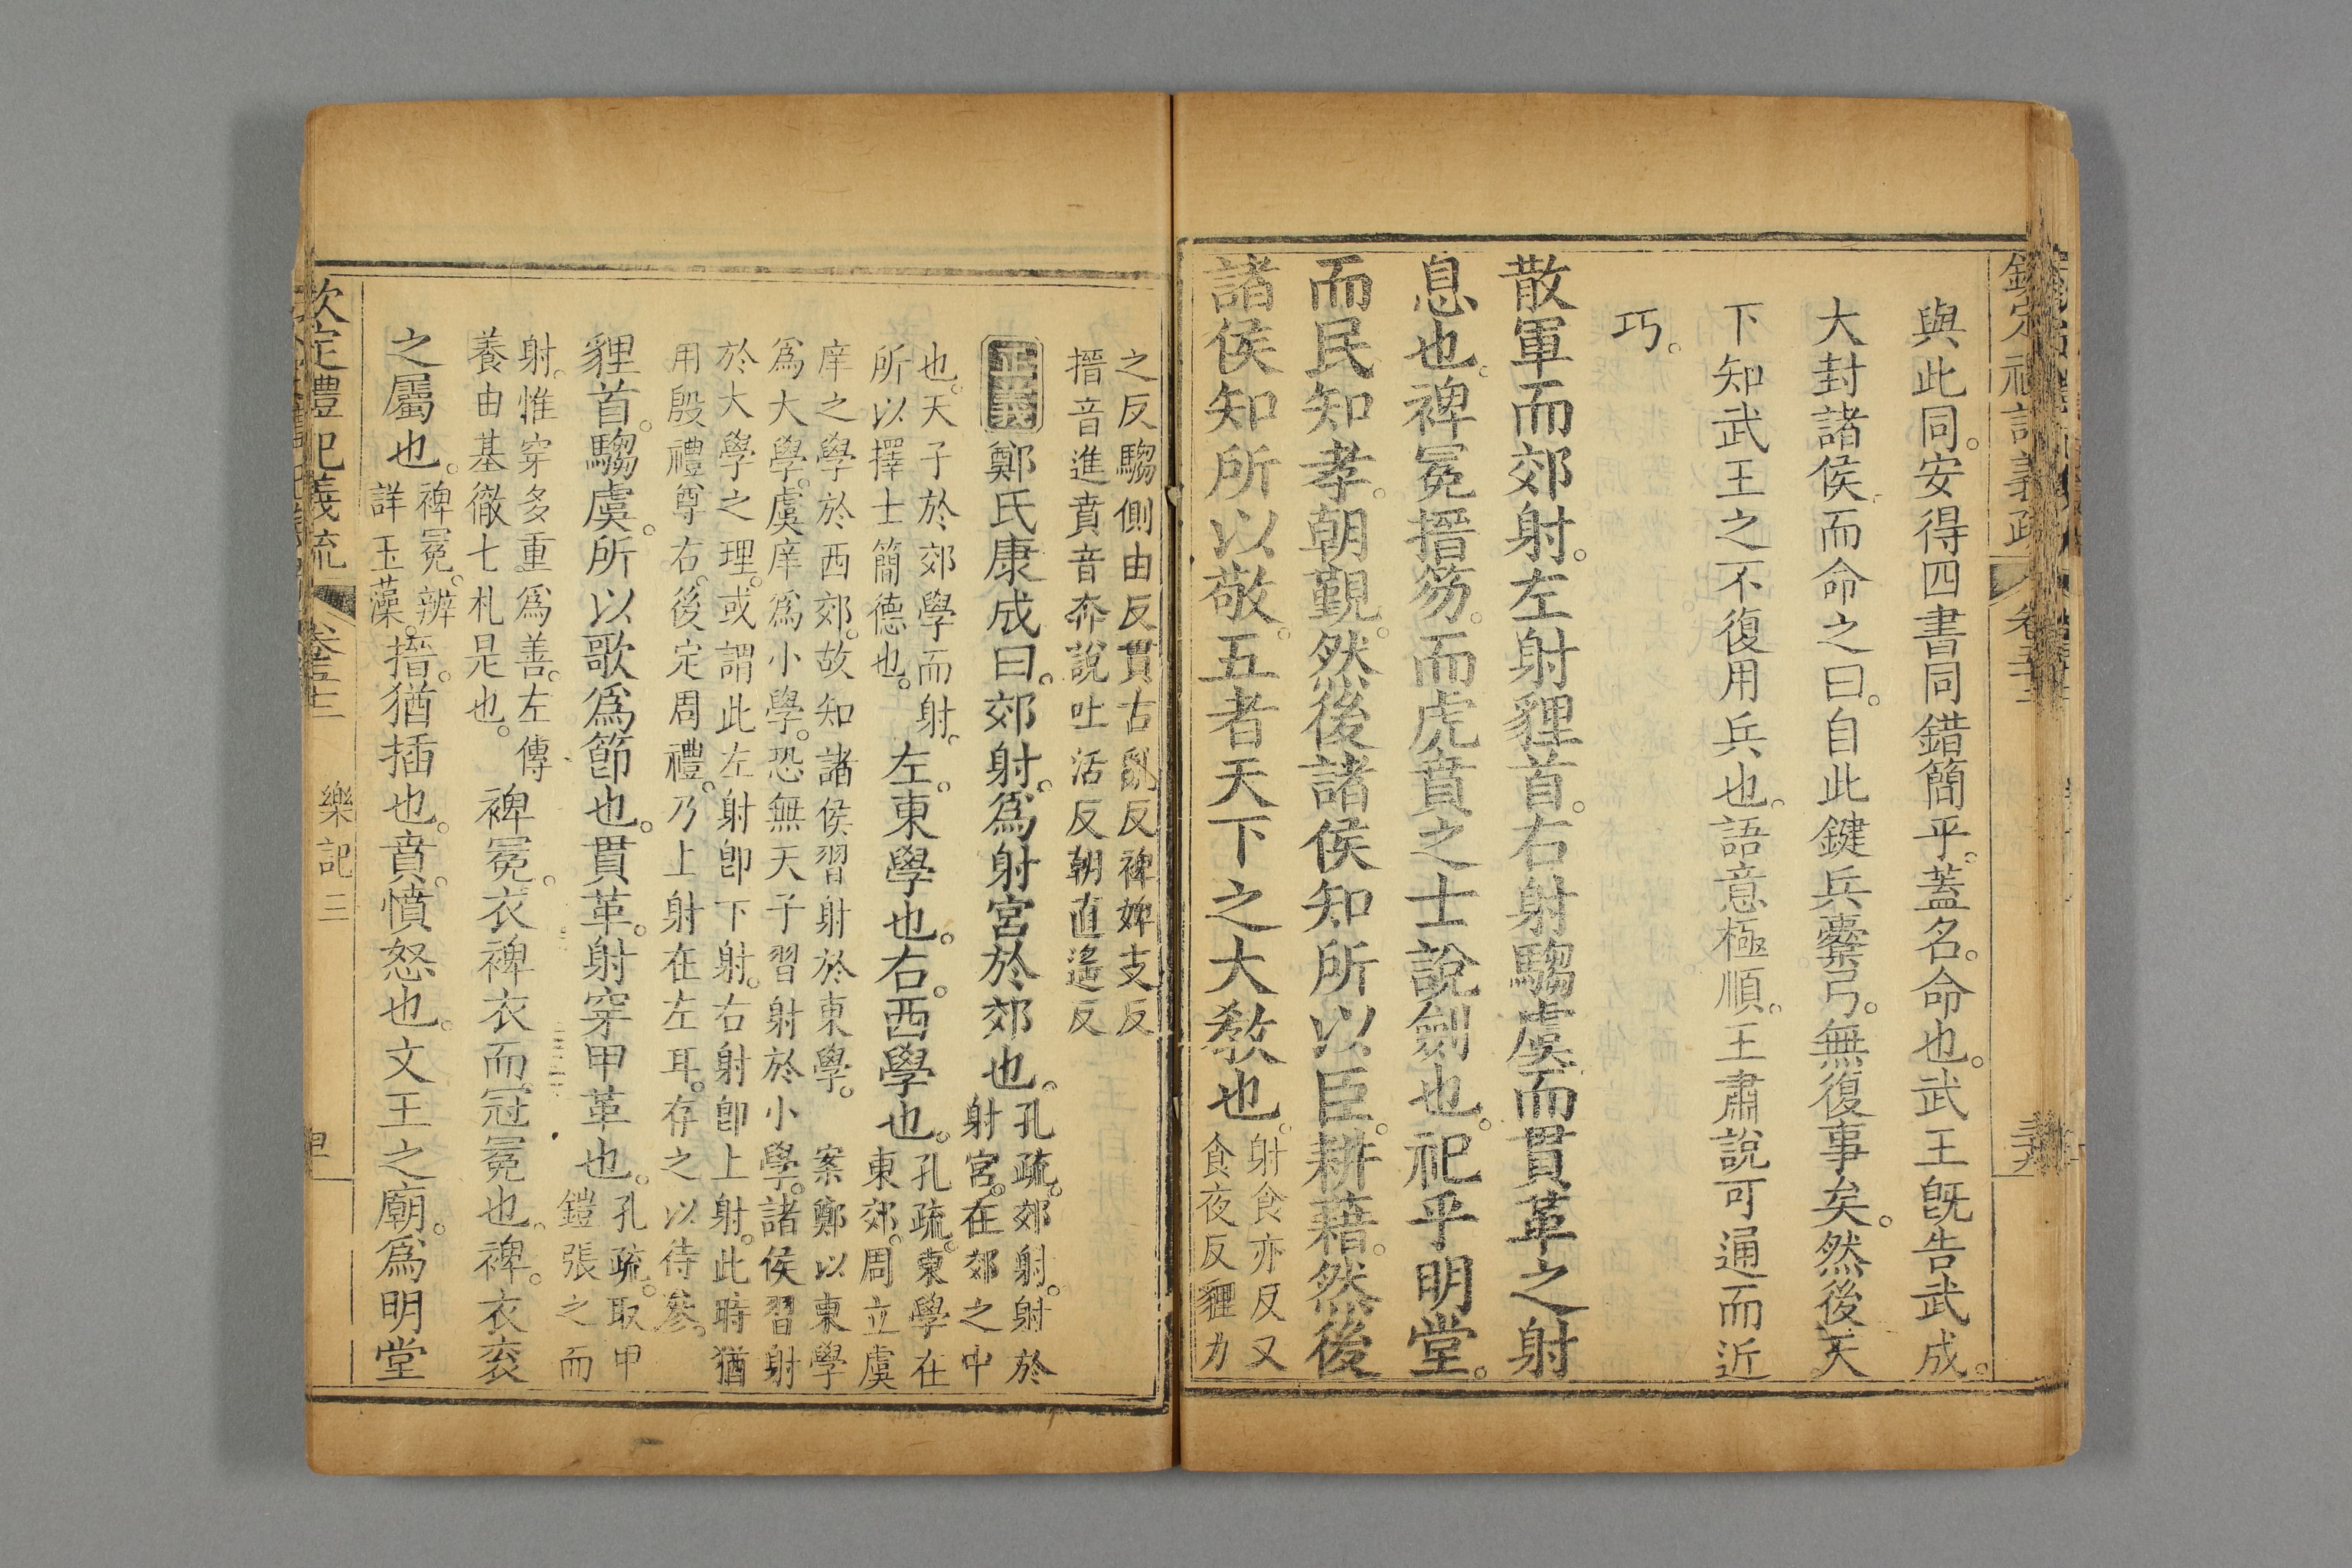 欽定禮記義疏 卷五十二
與此同。安得四書同錯簡乎。蓋名。命也。武王旣告武成。
大封諸侯而命之曰。自此鍵兵櫜弓。無復事矣。然後天
下知武王之不復用兵也。語意極順。王肅說可通而近
巧。
散軍而郊射。左射貍首。右射騶虞而貫革之射
息也。裨冕搢笏。而虎賁之士說劍也。祀乎明堂。
而民知孝。朝覲。然後諸侯知所以臣。耕藉。然後
諸侯知所以敬。五者天下之大敎也。射食亦反又食夜反貍力
之反騶側由反貫古亂反裨婢支反
搢音進賁音奔說吐活反朝直遙反
正義鄭氏康成曰。郊射。爲射宮於郊也。孔疏。郊射。射於射宮。在郊之中
也。天子於郊學而射。所以擇士簡德也。左。東學也。右。西學也。孔疏。東學在東郊。周立虞
庠之學於西郊。故知諸侯習射於東學。案鄭以東學
爲大學。虞庠爲小學。恐無天子習射於小學。諸侯習射
於大學之理。或謂此左射卽下射。右射卽上射。此時猶
用殷禮尊右。後定周禮。乃上射在左耳。存之以待參。
貍首。騶虞。所以歌爲節也。貫革。射穿甲革也。孔疏。取甲鎧張之而
射。惟穿多重爲善。左傳養由基徹七札是也。裨冕。衣裨衣而冠冕也。裨。衣袞
之屬也。裨冕。辨詳玉藻。搢。猶插也。賁。憤怒也。文王之廟。爲明堂
欽定禮記義疏 卷五十三 樂記三